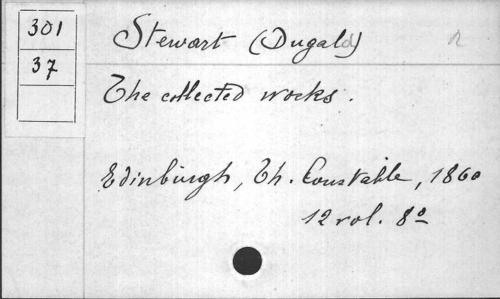 301
37
Stewart (Dugald)
The collected works.
Edinburgh, Th. Constable, 1860
12 vol. 8º